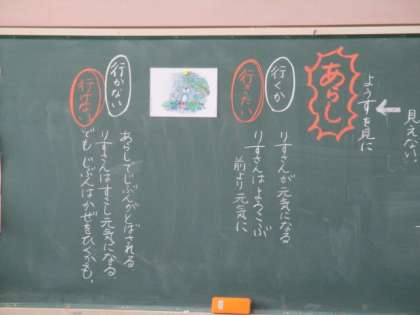 見えない
ようすを見に
あらし
行くか
行きたい
りすさんが元気になる
りすさんはよろこぶ
前より元気に
行かない
行けない
あらしでじぶんがとばされる
りすさんはすこし元気になる。
でもじぶんはかぜをひくかも。